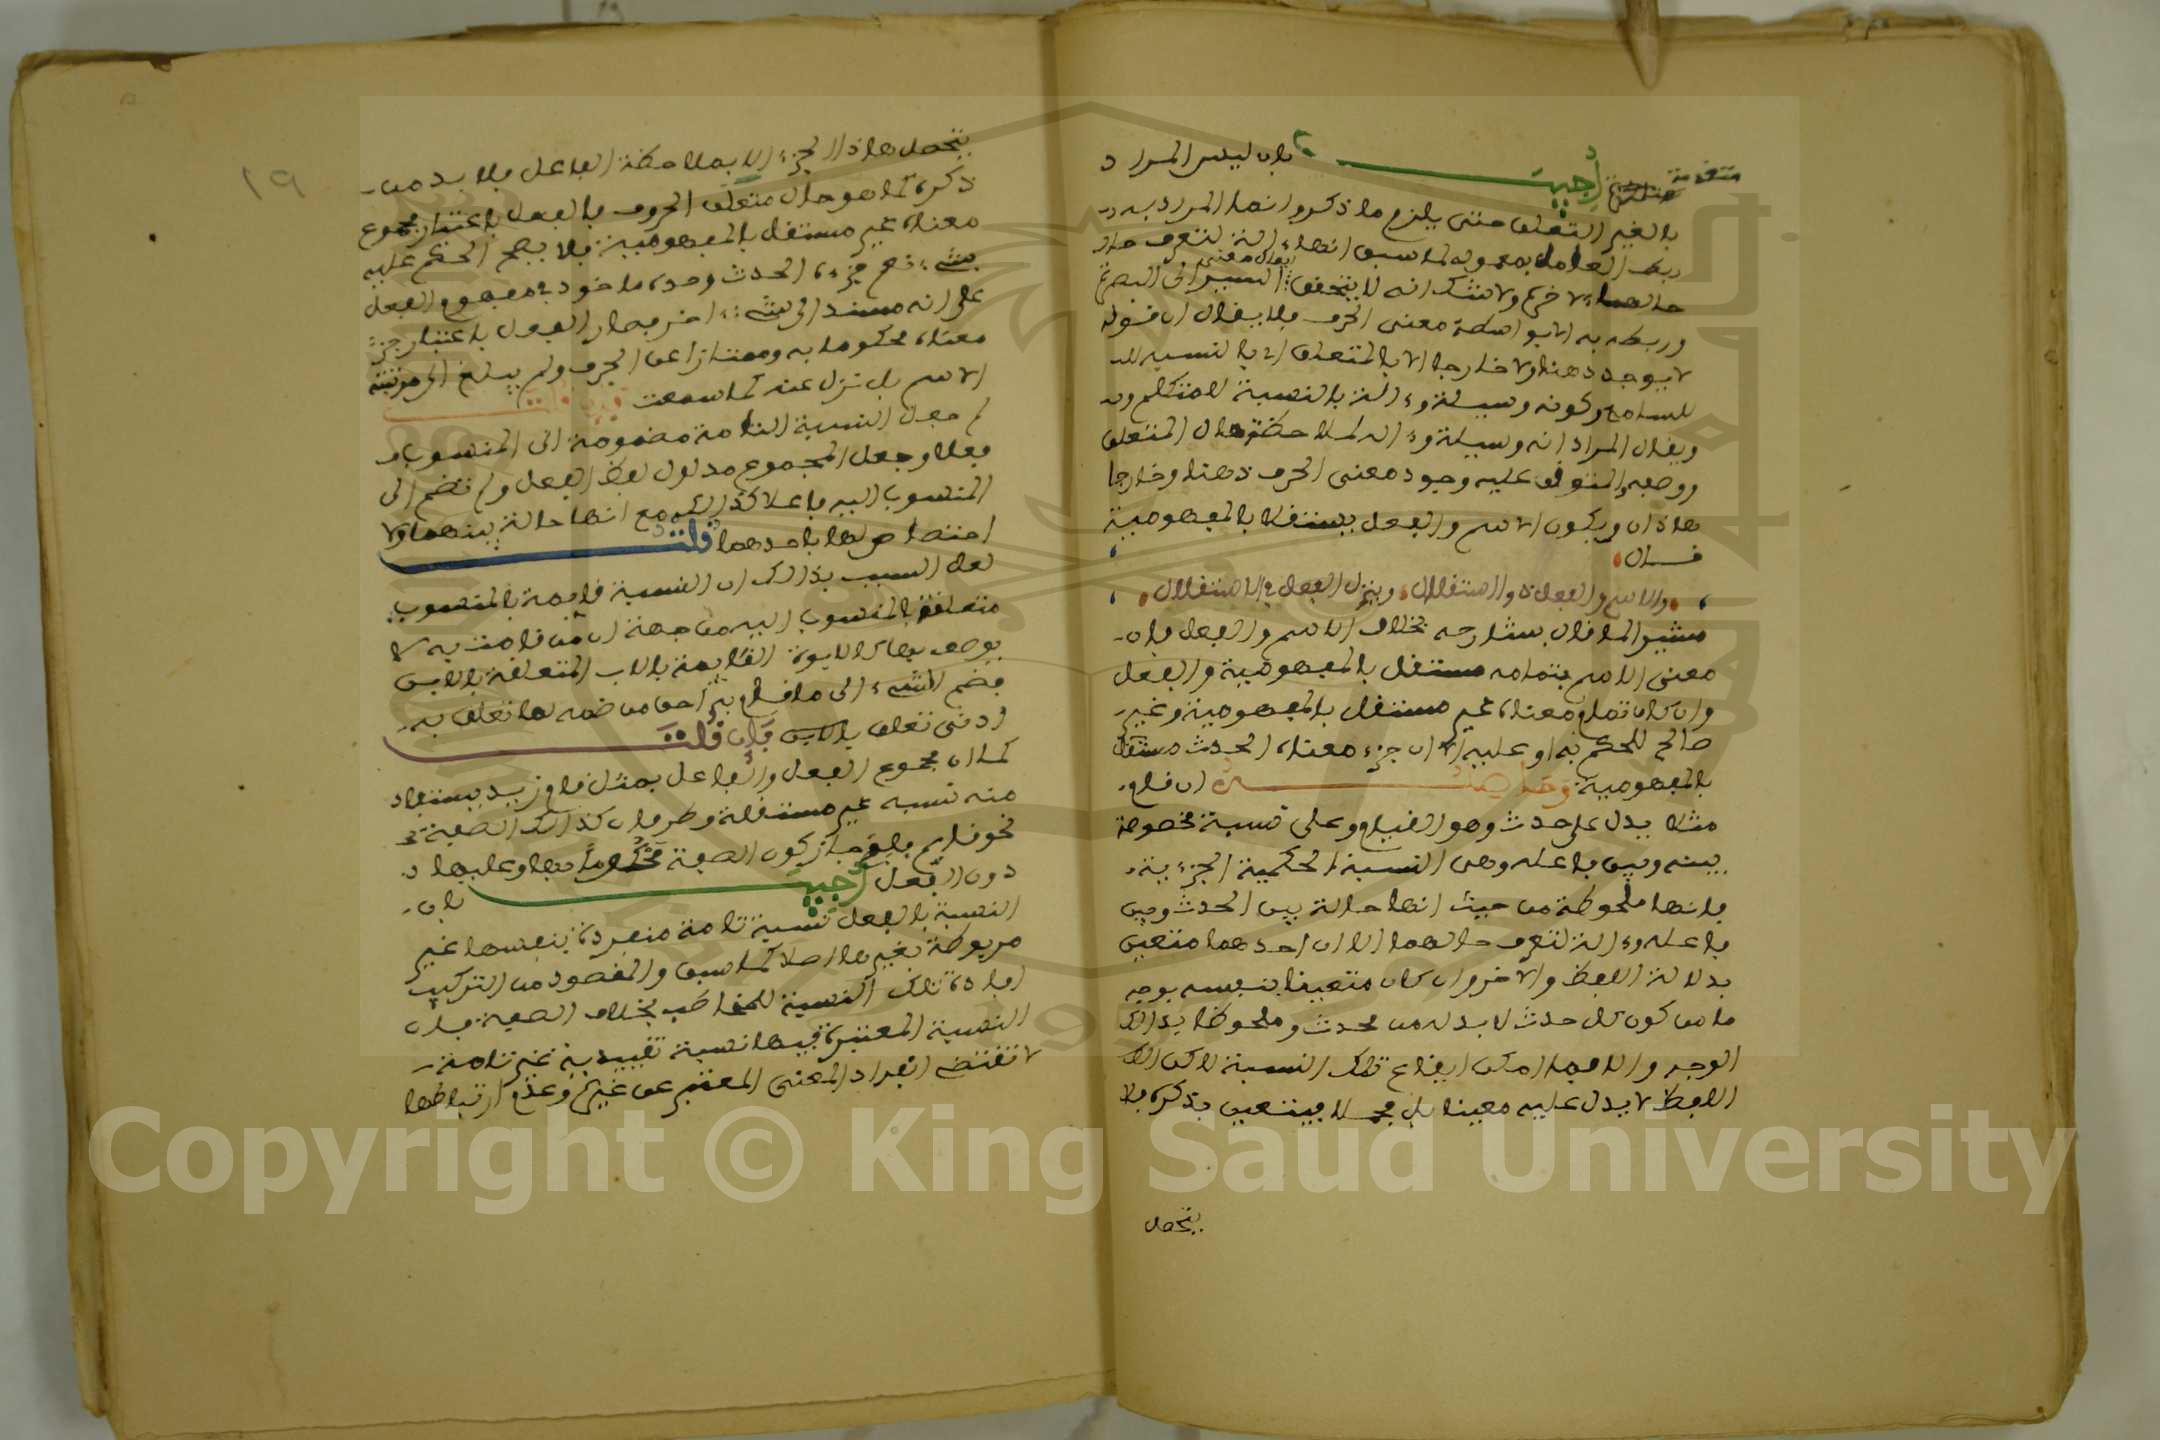 متقدمة اجيب بان ليس المراد
بالغير التعلق حتى يلزم ما ذكر وانما المراد به
ربط العامل بمعموله لما سبق انها ءالة لتعرف حال
حالهما لاخر ولا شك انه لا يتحقق السير الى البصرة
وربطه به الا بواسطة معنى الحرف فلا يقال ان قوله
لا يوجد ذهنا ولا خارجا الا بالمتعلق اي بالنسبة
للسامع وكونه وسيلة وءالة بالنسبة للمتكلم
ويقال المراد انه وسيلة وءالة لملاحظة حال المتعلق
ووصفه والمتوقف عليه وجود معنى الحرف ذهنا وخارجا
هاذان ويكون الاسم والفعل يستقلا بالمفهومية
قال
والاسم والفعل ذو الاستقلال وينزل الفعل في الاستقلال
مشير لما قال شارحه بخلاف الاسم والفعل فان
معنى الاسم بتمامه مستقل بالمفهومية والفعل
وان كان تمام معناه غير مستقل بالمفهومية وغير
صالح للحكم به او عليه الا ان جزء معناه الحدث مستقل
بالمفهومية وحاصله ان قام
مثلا يدل على حدث وهو القيام وعلى نسبة مخصوصة
بينه وبين فاعله وهي النسبة الحكمية الجزءية
فانها ملحوظة من حيث انها حالة بين الحدث وبين
فاعله وءالة لتعرف حالهما الا ان احدهما متعين
بدلالة اللفظ والاخر وان كان متعينا بنفسه بوجه
ما من كون كل حدث لا بد له من محدث وملحوظا بذالك
الوجه والا فما امكن ايقاع تلك النسبة لاكن
اللفظ لا يدل عليه معينا بل مجملا فيتعين بذكره فلا
يتحصل
١٩
يتحصل هاذا الجزء الا بملاحظة الفاعل فلا بد من
ذكره كما هو حال متعلق الحروف فالفعل باعتبار مجموع
معناه غير مستقل بالمفهومية فلا يصح الحكم عليه
بشيء نعم جزءه الحدث وحده ماخوذ في مفهوم الفعل
على انه مسند الى شيء اخر فصار الفعل باعتبار جزء
معناه محكوما به وممتازا عن الحرف ولم يبلغ الى مرتبة
الاسم بل تنزل عنه كما سمعت فان قلت
لم جعل النسبة التامة مضمومة الى المنسوب
فعلا وجعل المجموع مدلول لفظ الفعل ولم تضم الى
المنسوب اليه فاعلا كذالك مع انها حالة بينهما ولا
اختصاص لها باحدهما قلت
لعل السبب بذالك ان النسبة قايمة بالمنسوب
متعلقة بالمنسوب اليه من جهة ان من قامت به لا
يوصف بها كالابوة القايمة بالاب المتعلقة بالابن
فضم الشيء الى ما قام به احق من ضمه لما تعلق به
ادنى تعلق بالابن فان قلت
كما ان مجموع الفعل والفاعل بمثل قام زيد يستفاد
منه نسبه غير مستقلة وطرفان كذالك الصفة
نحو قايم فلم جاز كون الصفة محكوما بها وعليها
دون الفعل اجيب بان
النسبة بالفعل نسبة تامة منفردة بنفسها غير
مربوطة بغيرها اصلا كما سبق والمقصود من التركيب
افادة تلك النسبة للمخاطب بخلاف الصفة فان
النسبة المعتبرة فيها نسبة تقييدية غير تامة
لا تقتضي انفراد المعنى المعتبر عن غيره وعدم ارتباطها
Copyright © King Saud University